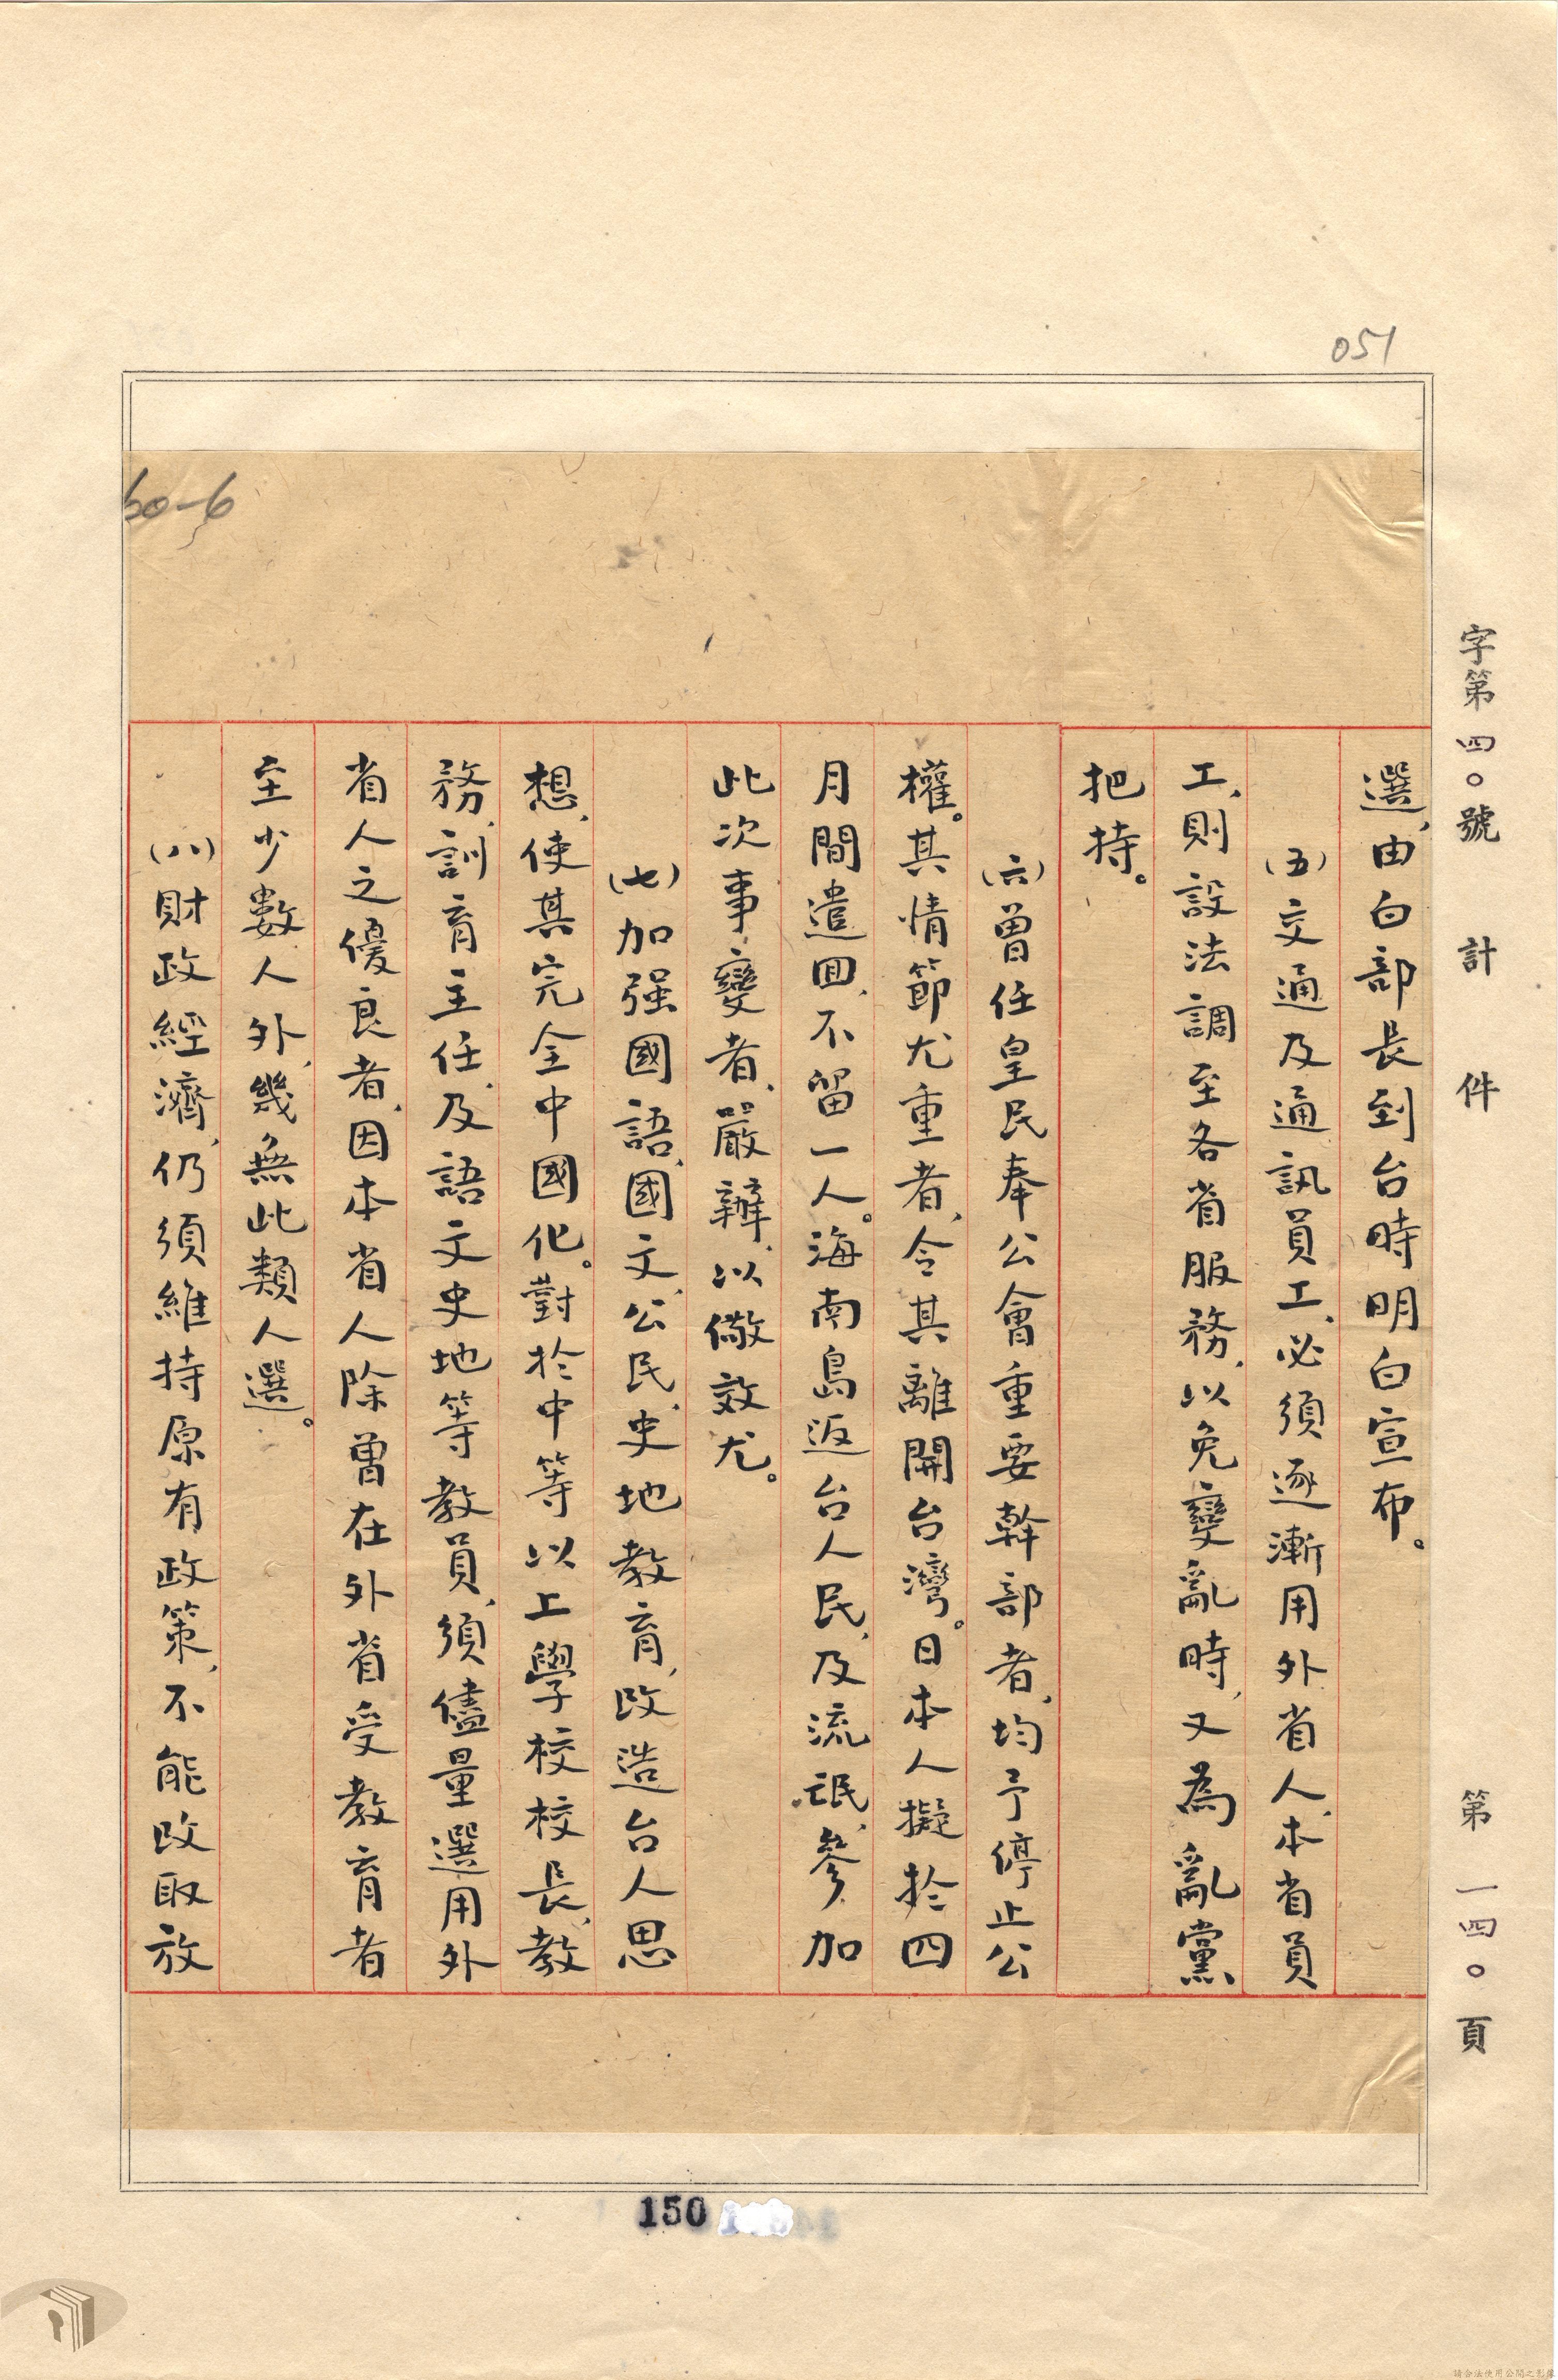 051
60-6
字第四〇號 計 件 第一四〇頁
選、由白部長到台時明白宣布。
(五)交通及通訊員工、必須逐漸用外省人、本省員
工、則設法調至各省服務、以免變亂時、又為亂黨
把持。
(六)曾任皇民奉公會重要幹部者、均予停止公
權。其情節尤重者、令其離開台灣。日本人擬於四
月間遣回、不留一人。海南島返台人民、及流氓、參加
此次事變者、嚴辦、以儆效尤。
(七)加强國語、國文、公民、史地教育、改造台人思
想、使其完全中國化。對於中等以上學校校長、教
務、訓育主任、及語文史地等教員、須儘量選用外
省人之優良者、因本省人除曾在外省受教育者
至少數人外、幾無此類人選。
(八)財政經濟、仍須維持原有政策、不能改取放
150
請合法使用公開之影像